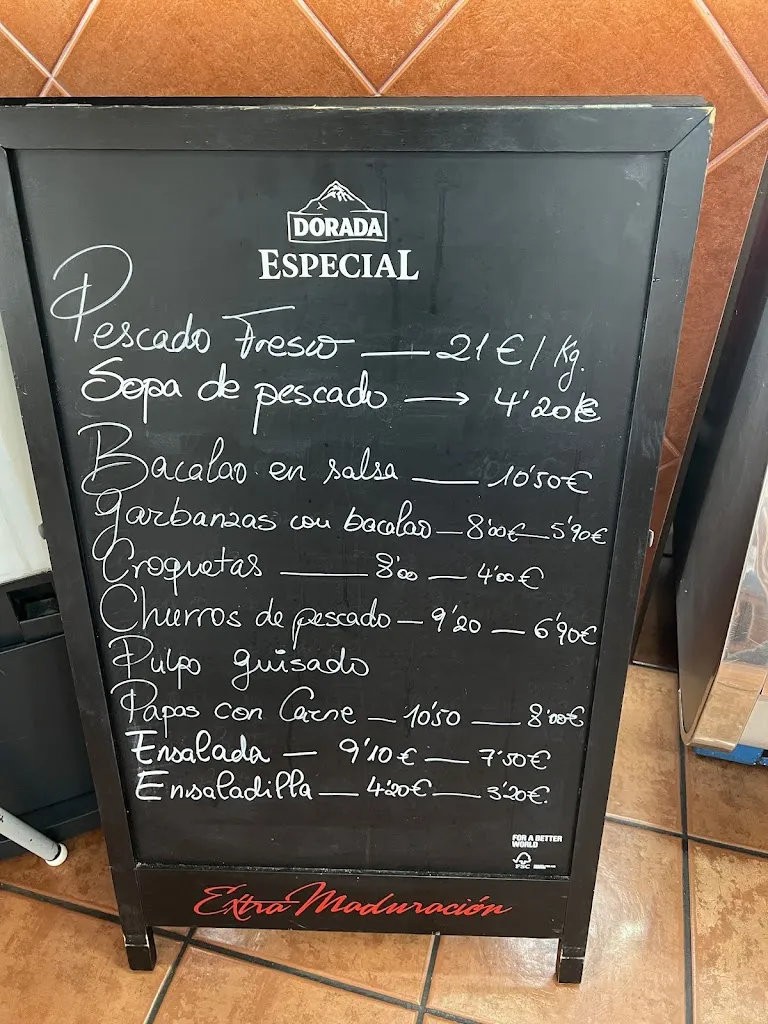 DORADA
ESPECIAL
Pescado Fresco — 21 € / Kg.
Sopa de pescado → 4'20€
Bacalao en salsa — 10'50€
Garbanzas con bacalao — 8'00€ — 5'90€
Croquetas — 8'00 — 4'00€
Churros de pescado — 9'20 — 6'90€
Pulpo guisado
Papas con Carne — 10'50 — 8'00€
Ensalada — 9'10€ — 7'50€
Ensaladilla — 4'20€ — 3'20€.
FOR A BETTER
WORLD
FSC
Extra Maduración